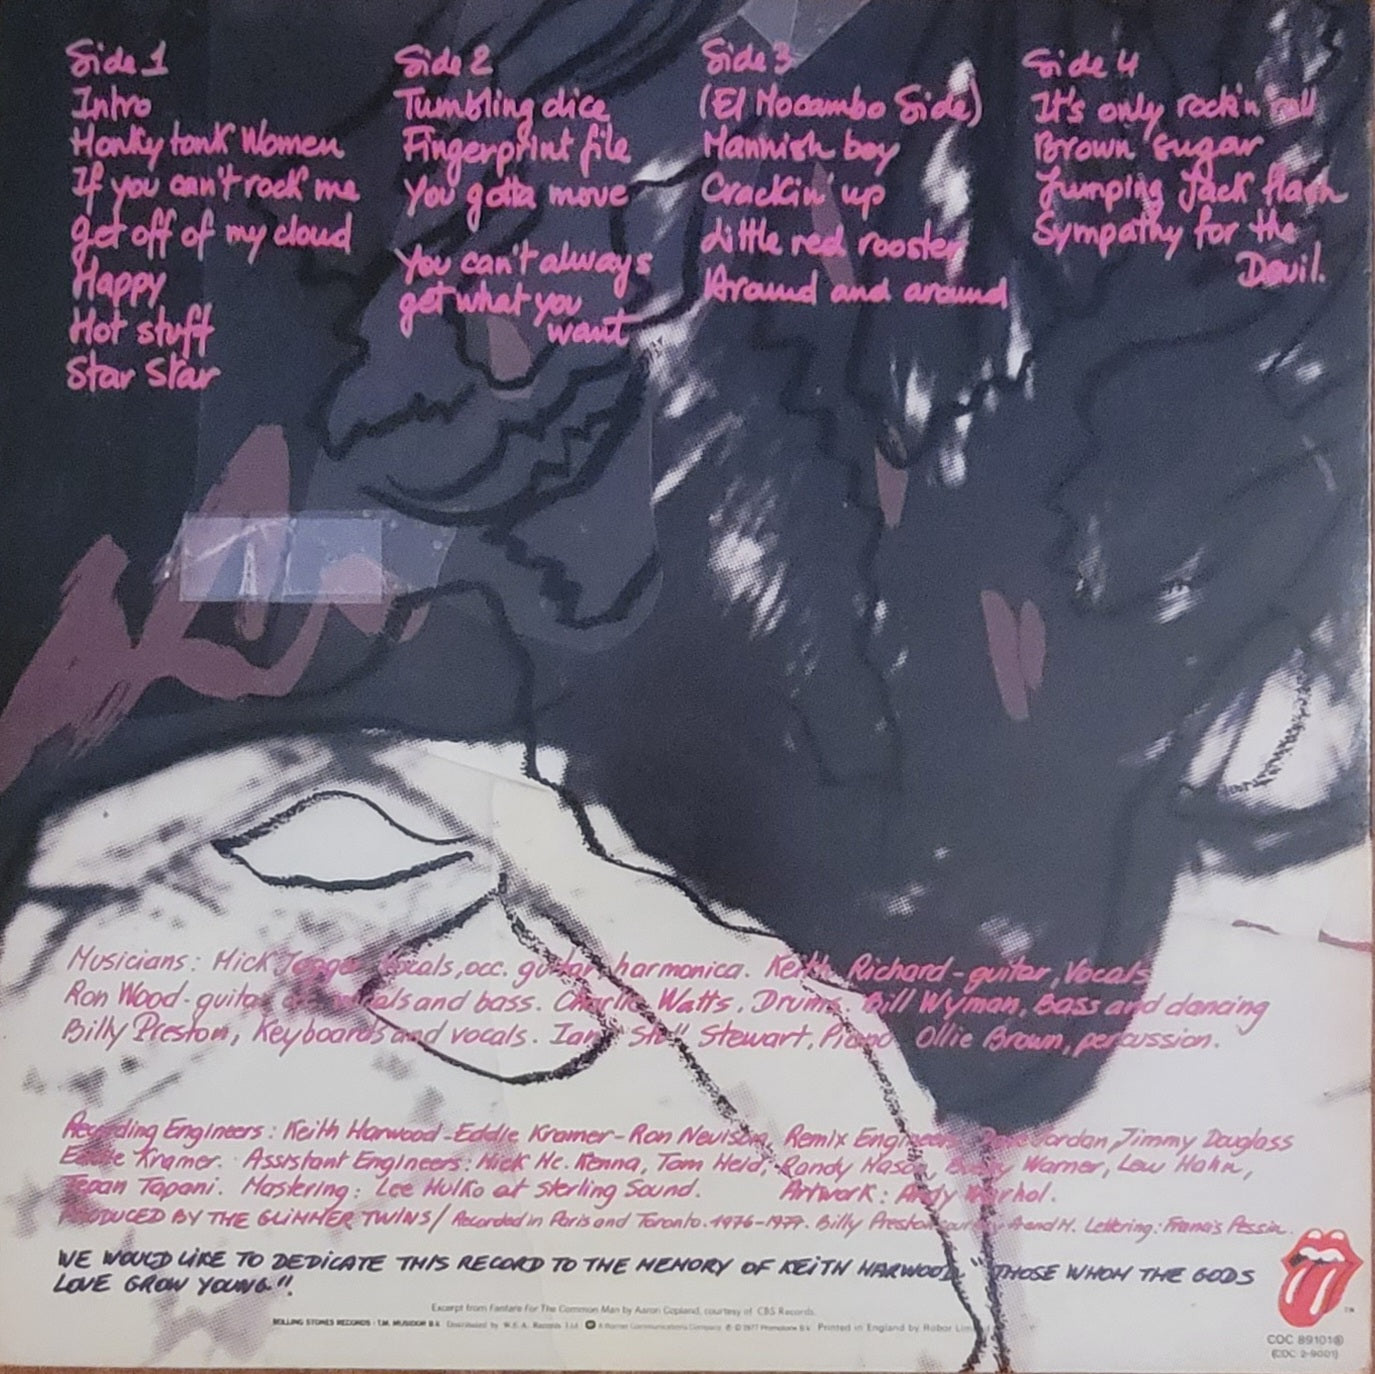 Side 1
Intro
Honky tonk Women
If you can't rock me
get off of my cloud
Happy
Hot stuff
Star Star
Side 2
Tumbling dice
Fingerprint file
You gotta move
You can't always
get what you
want
Side 3
(El Mocambo Side)
Mannish boy
Crackin' up
Little red rooster
Around and around
Side 4
It's only rock'n roll
Brown sugar
Jumping Jack flash
Sympathy for the
Devil.
Musicians: Mick Jagger vocals, occ. guitar, harmonica. Keith Richard - guitar, Vocals
Ron Wood - guitar vocals and bass. Charlie Watts, Drums. Bill Wyman, Bass and dancing
Billy Preston, Keyboards and vocals. Ian "Stu" Stewart, Piano Ollie Brown, percussion.
Recording Engineers: Keith Harwood - Eddie Kramer - Ron Nevison, Remix Engineers Dave Jordan, Jimmy Douglass
Eddie Kramer. Assistant Engineers: Mick Mc. Kenna, Tom Heid, Randy Mason, Bobby Warner, Lew Hahn,
Tepan Tapani. Mastering: Lee Hulko at Sterling Sound. Artwork: Andy Warhol.
PRODUCED BY THE GLIMMER TWINS / Recorded in Paris and Toronto. 1976-1977. Billy Preston courtesy A and M. Lettering: Francis Pessin.
WE WOULD LIKE TO DEDICATE THIS RECORD TO THE MEMORY OF KEITH HARWOOD "THOSE WHOM THE GODS
LOVE GROW YOUNG"!
Excerpt from Fanfare For The Common Man by Aaron Copland, courtesy of CBS Records.
ROLLING STONES RECORDS: T.M. MUSIDOR B.V. Distributed by W.E.A. Records Ltd. A Warner Communications Company. ℗ © 1977 Promotone B.V. Printed in England by Robor Limited
TM
COC 89101
(COC 2-9001)